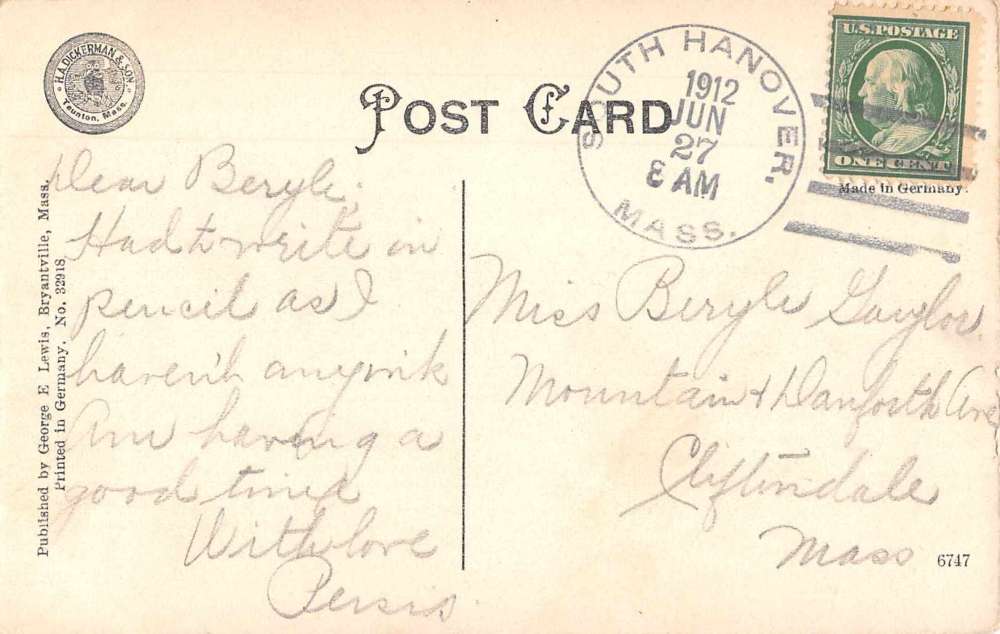 H.A. DICKERMAN & SON
Taunton, Mass.
POST CARD
SOUTH HANOVER,
1912
JUN
27
8 AM
MASS.
U.S. POSTAGE
ONE CENT
Made in Germany.
Published by George E Lewis, Bryantville, Mass.
Printed in Germany. No. 32918
Dear Beryle,
Had to write in
pencil as I
haven't any ink
Am having a
good time
With love
Persis
Miss Beryle Gaylor
Mountain & Danforth Ave
Cliftondale
Mass
6747